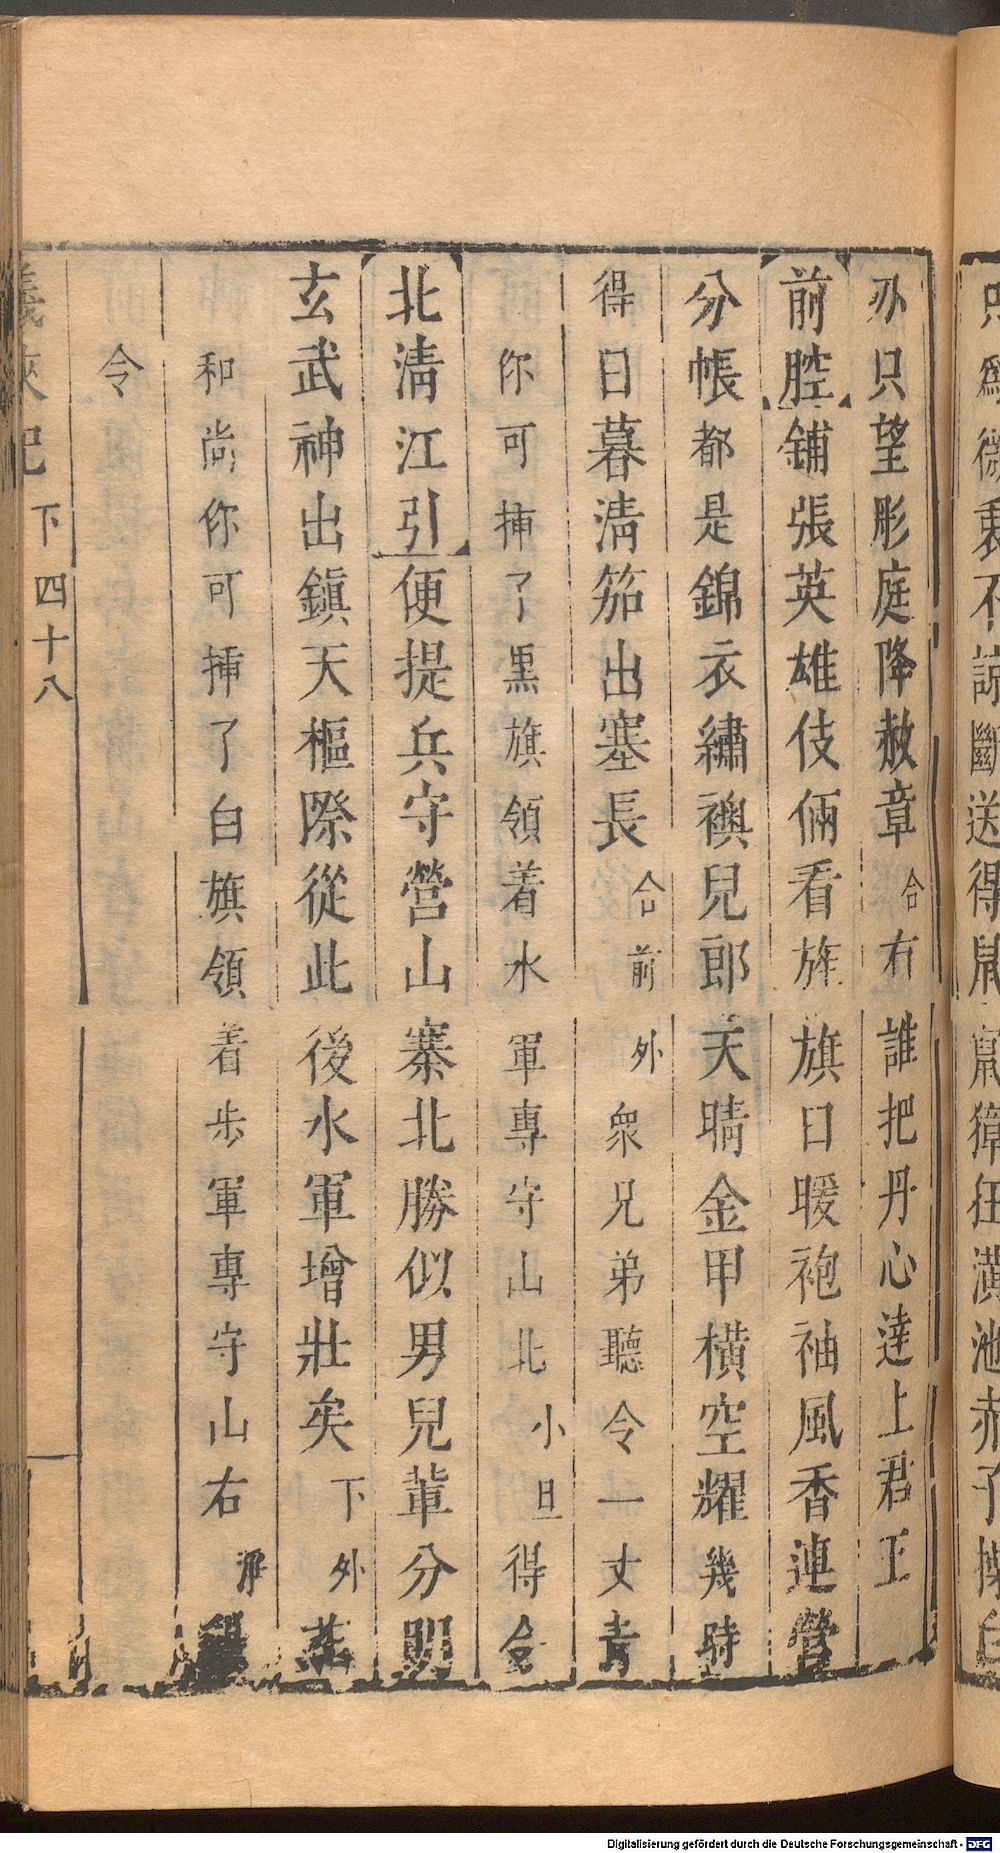 只爲微𮕵不諒斷送得鼠竄獐狂潢池赤子
办只望彤庭降赦章合有誰把丹心達上君王
前腔鋪張英雄伎倆看旌旗日暖袍袖風香連營
分帳都是錦衣繡襖兒郎天晴金甲橫空耀幾時
得日暮淸笳出塞長合前外衆兄弟聽令一丈青
你可挿了黒旗領着水軍專守山北小旦得令
北淸江引便提兵守營山寨北勝似男兒輩分明
玄武神出鎭天樞際從此後水軍增壯矣下外
和尚你可挿了白旗領着步軍專守山右淨
令
義俠記 下 四十八
Digitalisierung gefördert durch die Deutsche Forschungsgemeinschaft - DFG